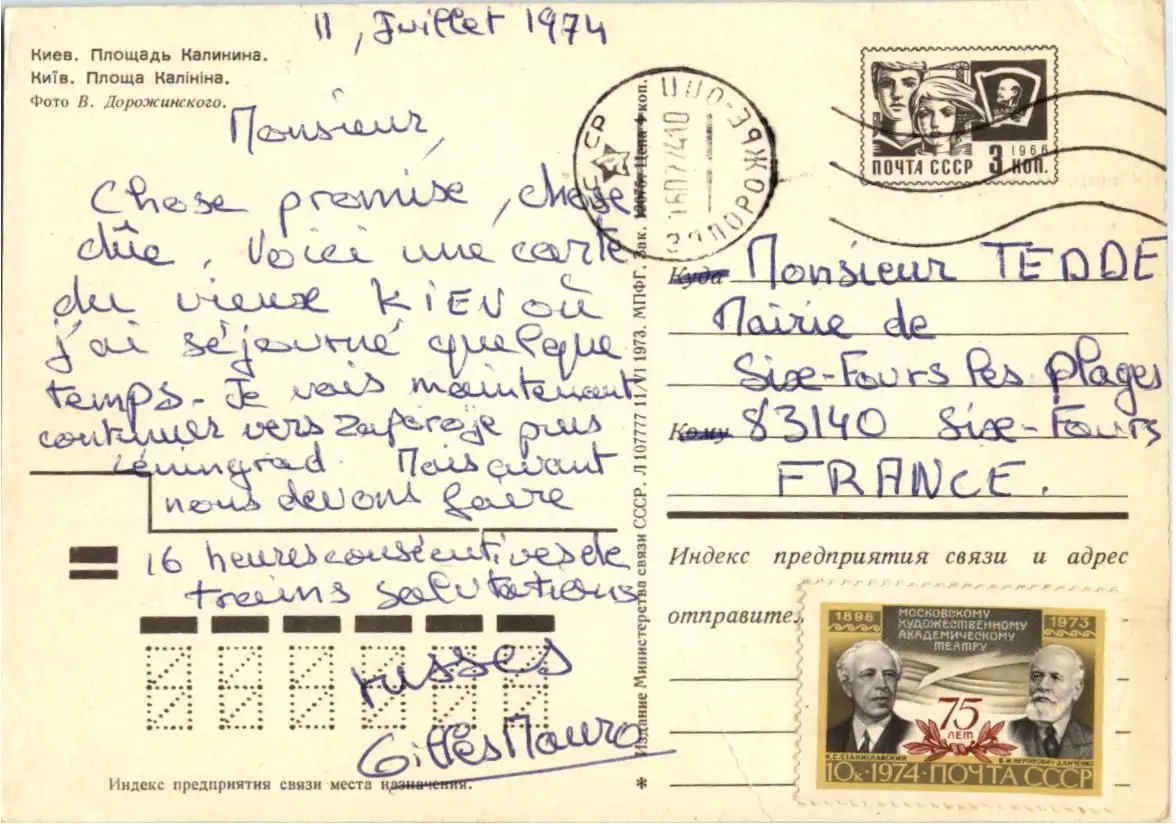 11, Juillet 1974
Киев. Площадь Калинина.
Київ. Площа Калініна.
Фото В. Дорожинского.
Monsieur,
Chose promise, chose
dûe, Voici une carte
du vieux KIEV où
j'ai séjourné quelque
temps - Je vais maintenant
continuer vers Zaporoje puis
Léningrad. Mais avant
nous devons faire
16 heures consécutives de
trains salutations
russes
Gilles Mauro
Индекс предприятия связи места назначения.
Издание Министерства связи СССР. Л107777 11/VI 1973. МПФГ. Зак. Цена 4 коп.
*
СССР
ЗАПОРОЖЬЕ-ОПП
16077410
ПОЧТА СССР 3 КОП.
1966
ВЛКСМ
Куда Monsieur TEDDE
Mairie de
Six-Fours les plages
Кому 83140 Six-Fours
FRANCE.
Индекс предприятия связи и адрес
отправител
1898 МОСКОВСКОМУ 1973
ХУДОЖЕСТВЕННОМУ
АКАДЕМИЧЕСКОМУ
ТЕАТРУ
75
ЛЕТ
К.С. СТАНИСЛАВСКИЙ В.И. НЕМИРОВИЧ-ДАНЧЕНКО
10к·1974·ПОЧТА СССР